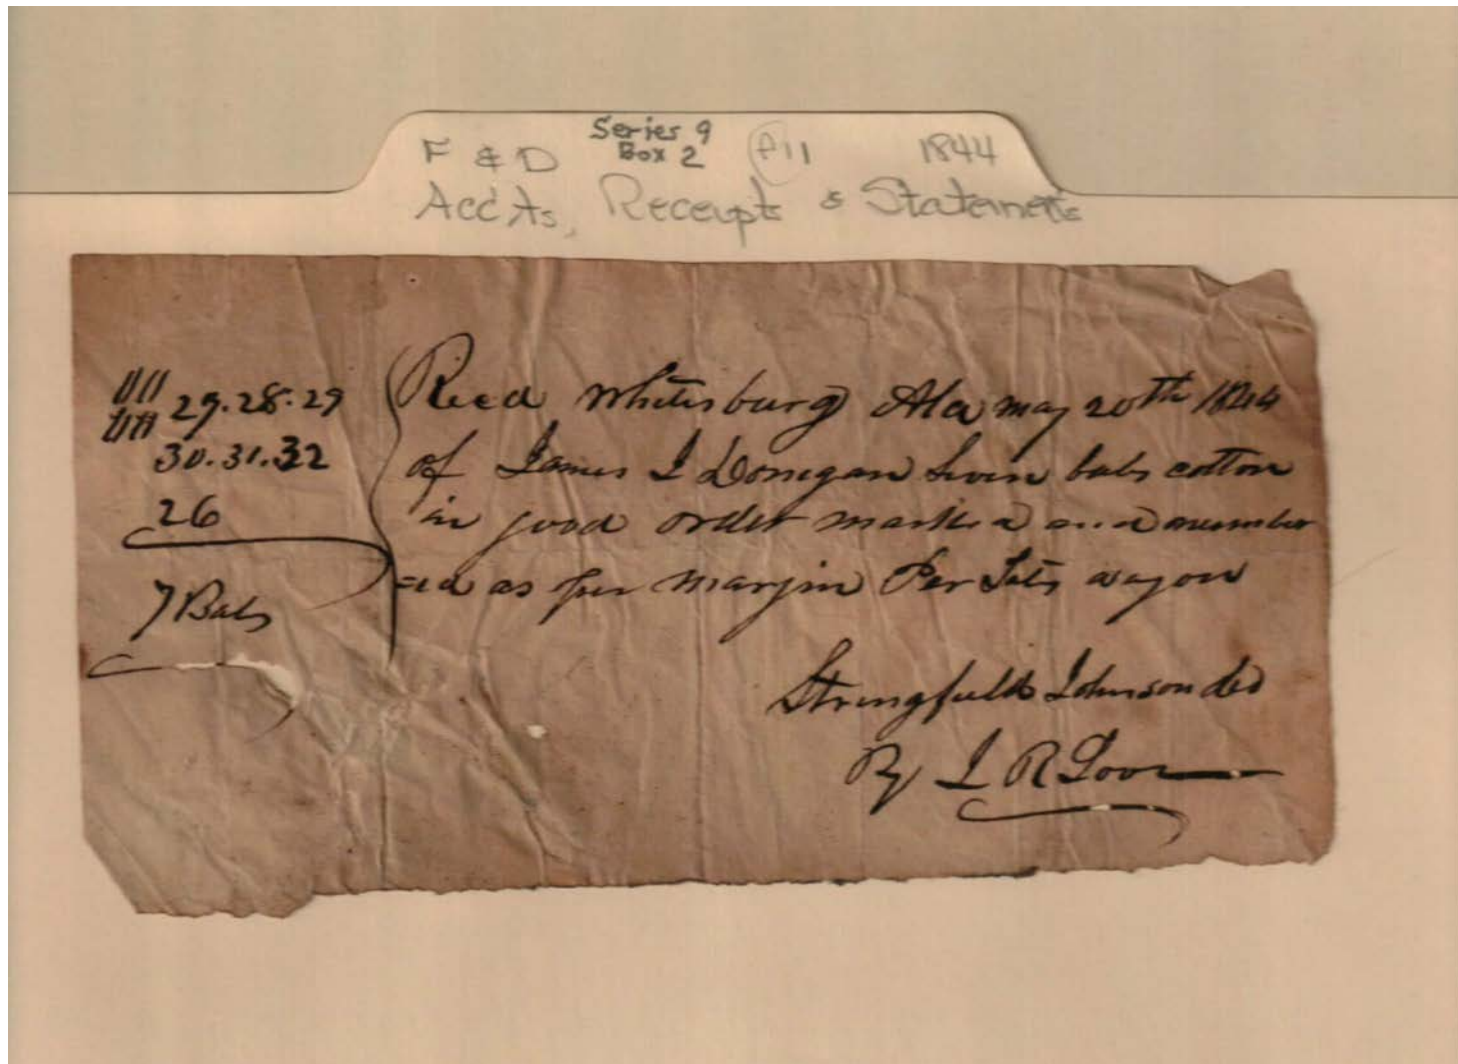 F & D Series 9 Box 2 F11 1844
Acc'ts, Receipts & Statements
29. 28. 29
30. 31. 32
26
7 Bals
Recd Whitesburg Ala may 20th 1844
of James J Donegan Seven bals cotton
in good order marked and number
=ed as per margin Per wagon
Stringfield Johnson & Co
By J R Love